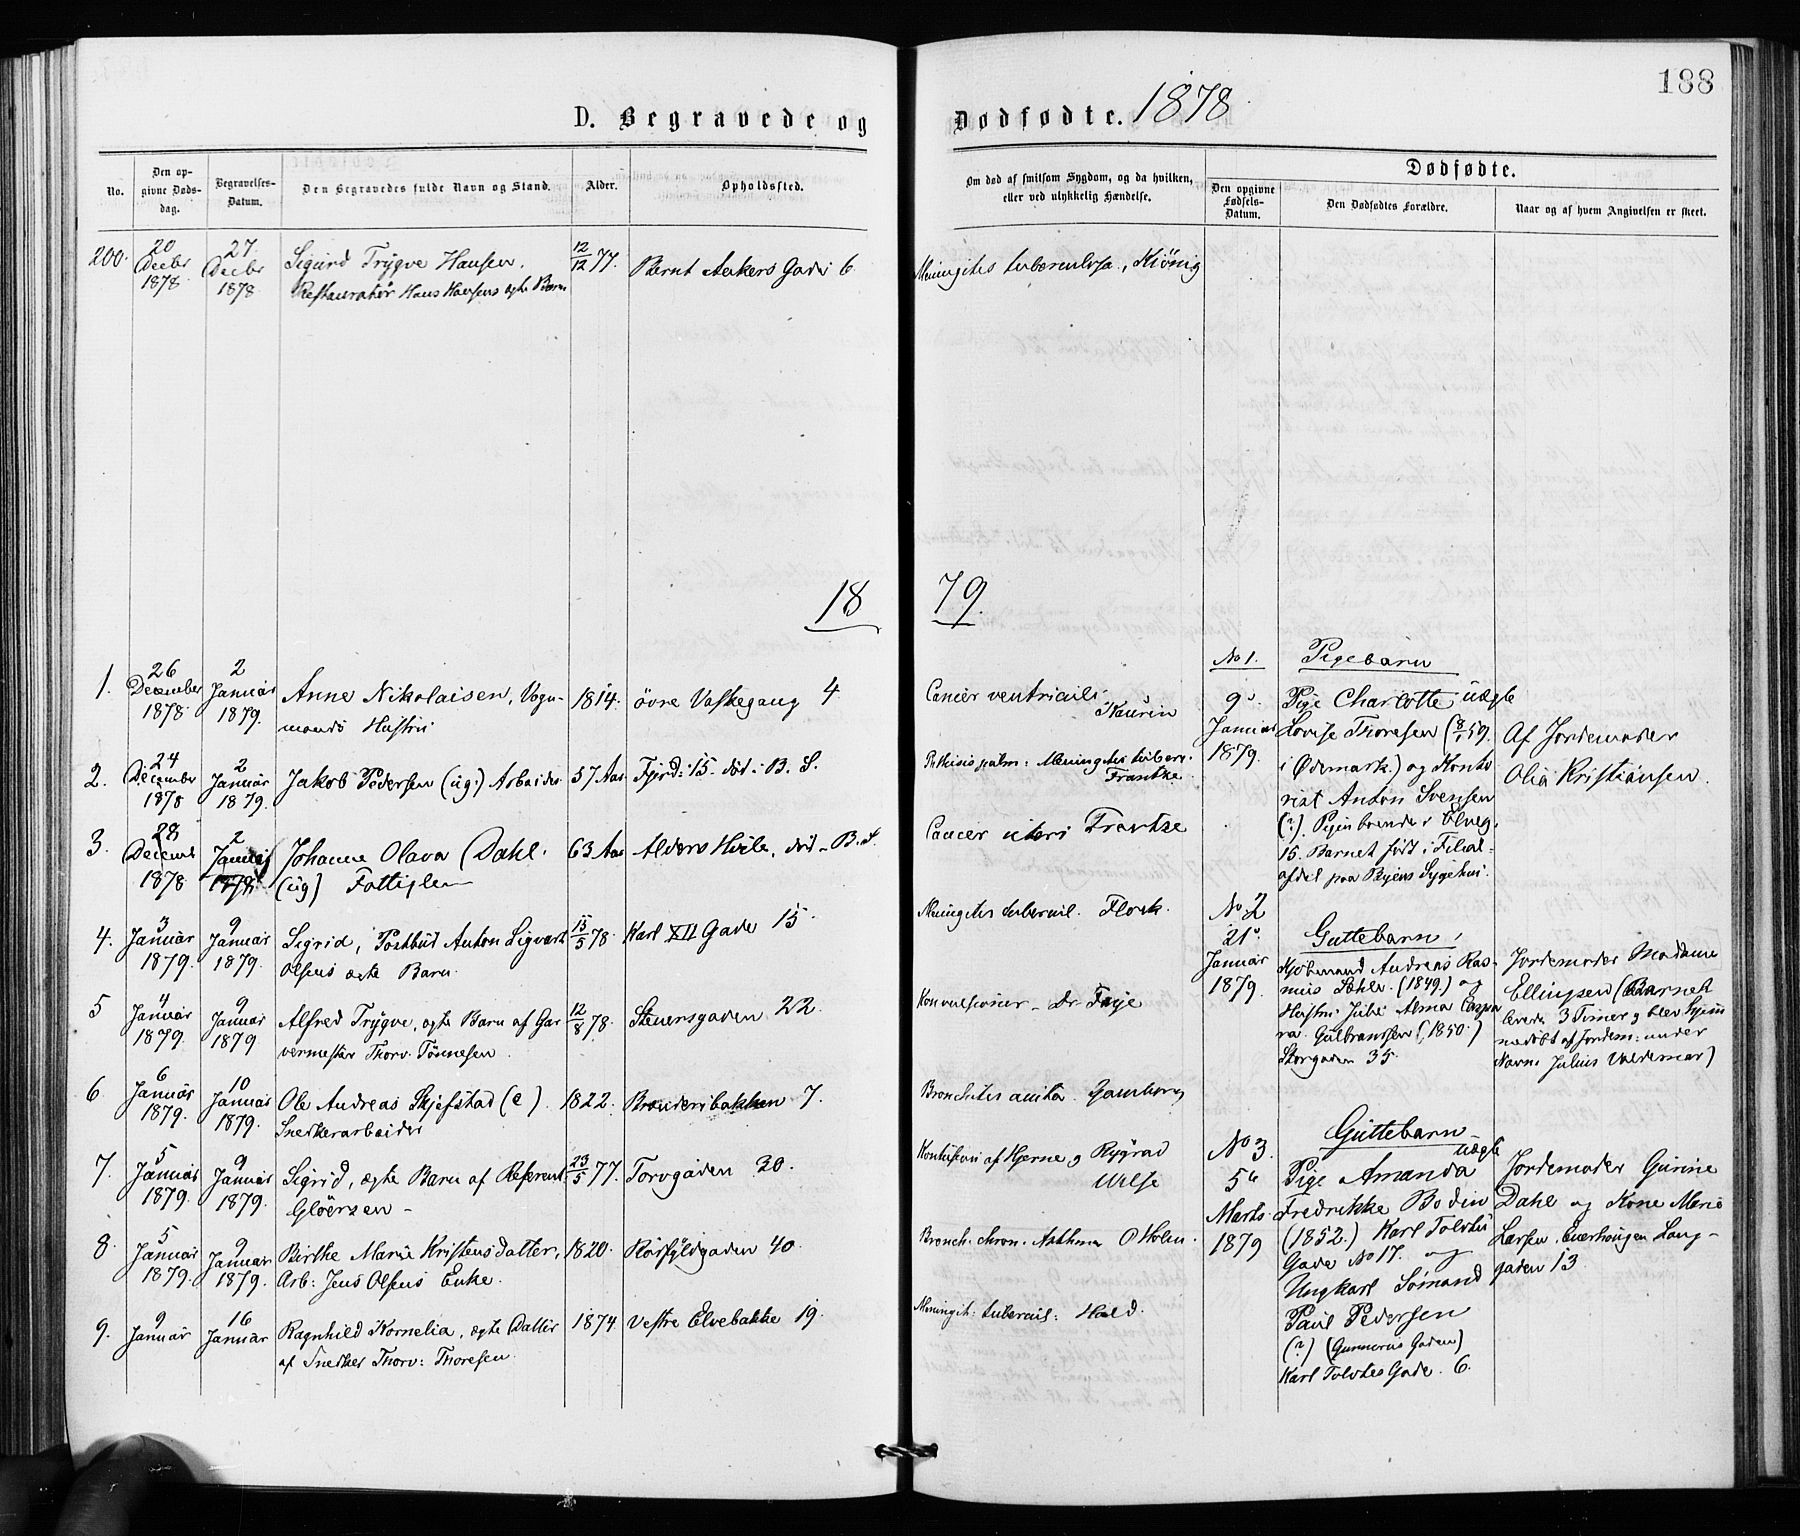 188
D. Begravede og Dødfødte. 1878
No.
Den opgivne Dødsdag.
Begravelses-Datum.
Den Begravedes fulde Navn og Stand.
Alder.
Opholdssted.
Om død af smitsom Sygdom, og da hvilken, eller ved ulykkelig Hændelse.
Dødfødte.
Den opgivne Fødsels-Datum.
Den Dødfødtes Forældre.
Naar og af hvem Angivelsen er skeet.
200. 20 Decbr 1878 27 Decbr 1878 Sigurd Trygve Hansen. 12/12 77. Bernt Ankers Gade 6 Meningites tuberculosa, Kiønig
Restauratør Hans Hansens ægte Barn
18 79.
1. 26 December 1878 2 Januar 1879. Anne Nikolaisen, Vogn- 1814. øvre Vaskegang 4 Cancer ventriculi Kaurin
mands Hustru
2. 24 December 1878 2 Januar 1879. Jakob Pedersen (ug) Arbeider 57 Aar Fjerd: 15. død i B. S. Pthisis pulm: Meningites tuberc. Frantze
3. 28 Decemb 1878 2 Januar Johanne Olava Dahl. 63 Aar Alders Hvile, død - B. S. Cancer uteri Frantze
(ug) Fattiglem
4. 3 Januar 1879. 9 Januar 1879. Sigrid, Postbud Anton Sigvart 15/5 78. Karl XII Gade 15. Meningites tubercul. Flock.
Olsens ægte Barn.
5 4 Januar 1879. 9 Januar 1879 Alfred Trygve, ægte Barn af Gar 12/8 78. Steensgaden 22. Konvulsioner - Dr. Faye
vermester Thorv. Tønnesen.
6 6 Januar 1879. 10 Januar 1879. Ole Andreas Skjefstad (e). 1822. Brænderibakken 7. Bronchites acuta. Gamborg
Snedkerarbeider
7. 5 Januar 1879. 9 Januar 1879. Sigrid, ægte Barn af Referent 23/5 77. Torvgaden 20. Kontusion af Hjerne og Rygrad
Gløersen -
8. 5 Januar 1879. 9 Januar 1879. Birthe Marie Kristensdatter, 1820. Rørfyldgaden 40. Bronch. chron. Asthma O Holm.
Arb: Jens Olsens Enke.
9. 9 Januar 16 Januar Ragnhild Kornelia, ægte Datter 1874 Vestre Elvebakke 19. Meningit: tubercul: Hald.
af Snedker Thorv: Thoresen.
No 1. Pigebarn
9. Januar 1879.
Pige Charlotte uægte
Lovise Thoresen (8/1 59.
i Ødemark.) og Konto
rist Anton Svensen
(?). Pigen boende
15. Barnet født i Filial-
afdel paa Byens Sygehus.
Af Jordemoder
Olia Kristiansen.
No 2
21. Januar 1879.
Guttebarn,
Kjøbmand Andreas Ras-
mus (1849.) og
Hustru Julie Alma
Gulbrandsen (1850.)
Storgaden 35.
Jordemoder Madame
Ellingsen (Barnet
levede 3 Timer og blev hjem
medøbt af Jordem: under
Navn Julius Valdemar)
No 3.
5 Marts 1879
Guttebarn
uægte
Pige Amanda
Fredrikke Bodin
(1852.) Karl Tolvtes
Gade No 17. og
Ungkarl Sømand
Paul Pedersen
(?) (Gunnerus Gaden)
Karl Tolvtes Gade. 6.
Jordemoder Gurine
Dahl og Kone Marie
Larsen, Enerhaugen Lang-
gaden 13